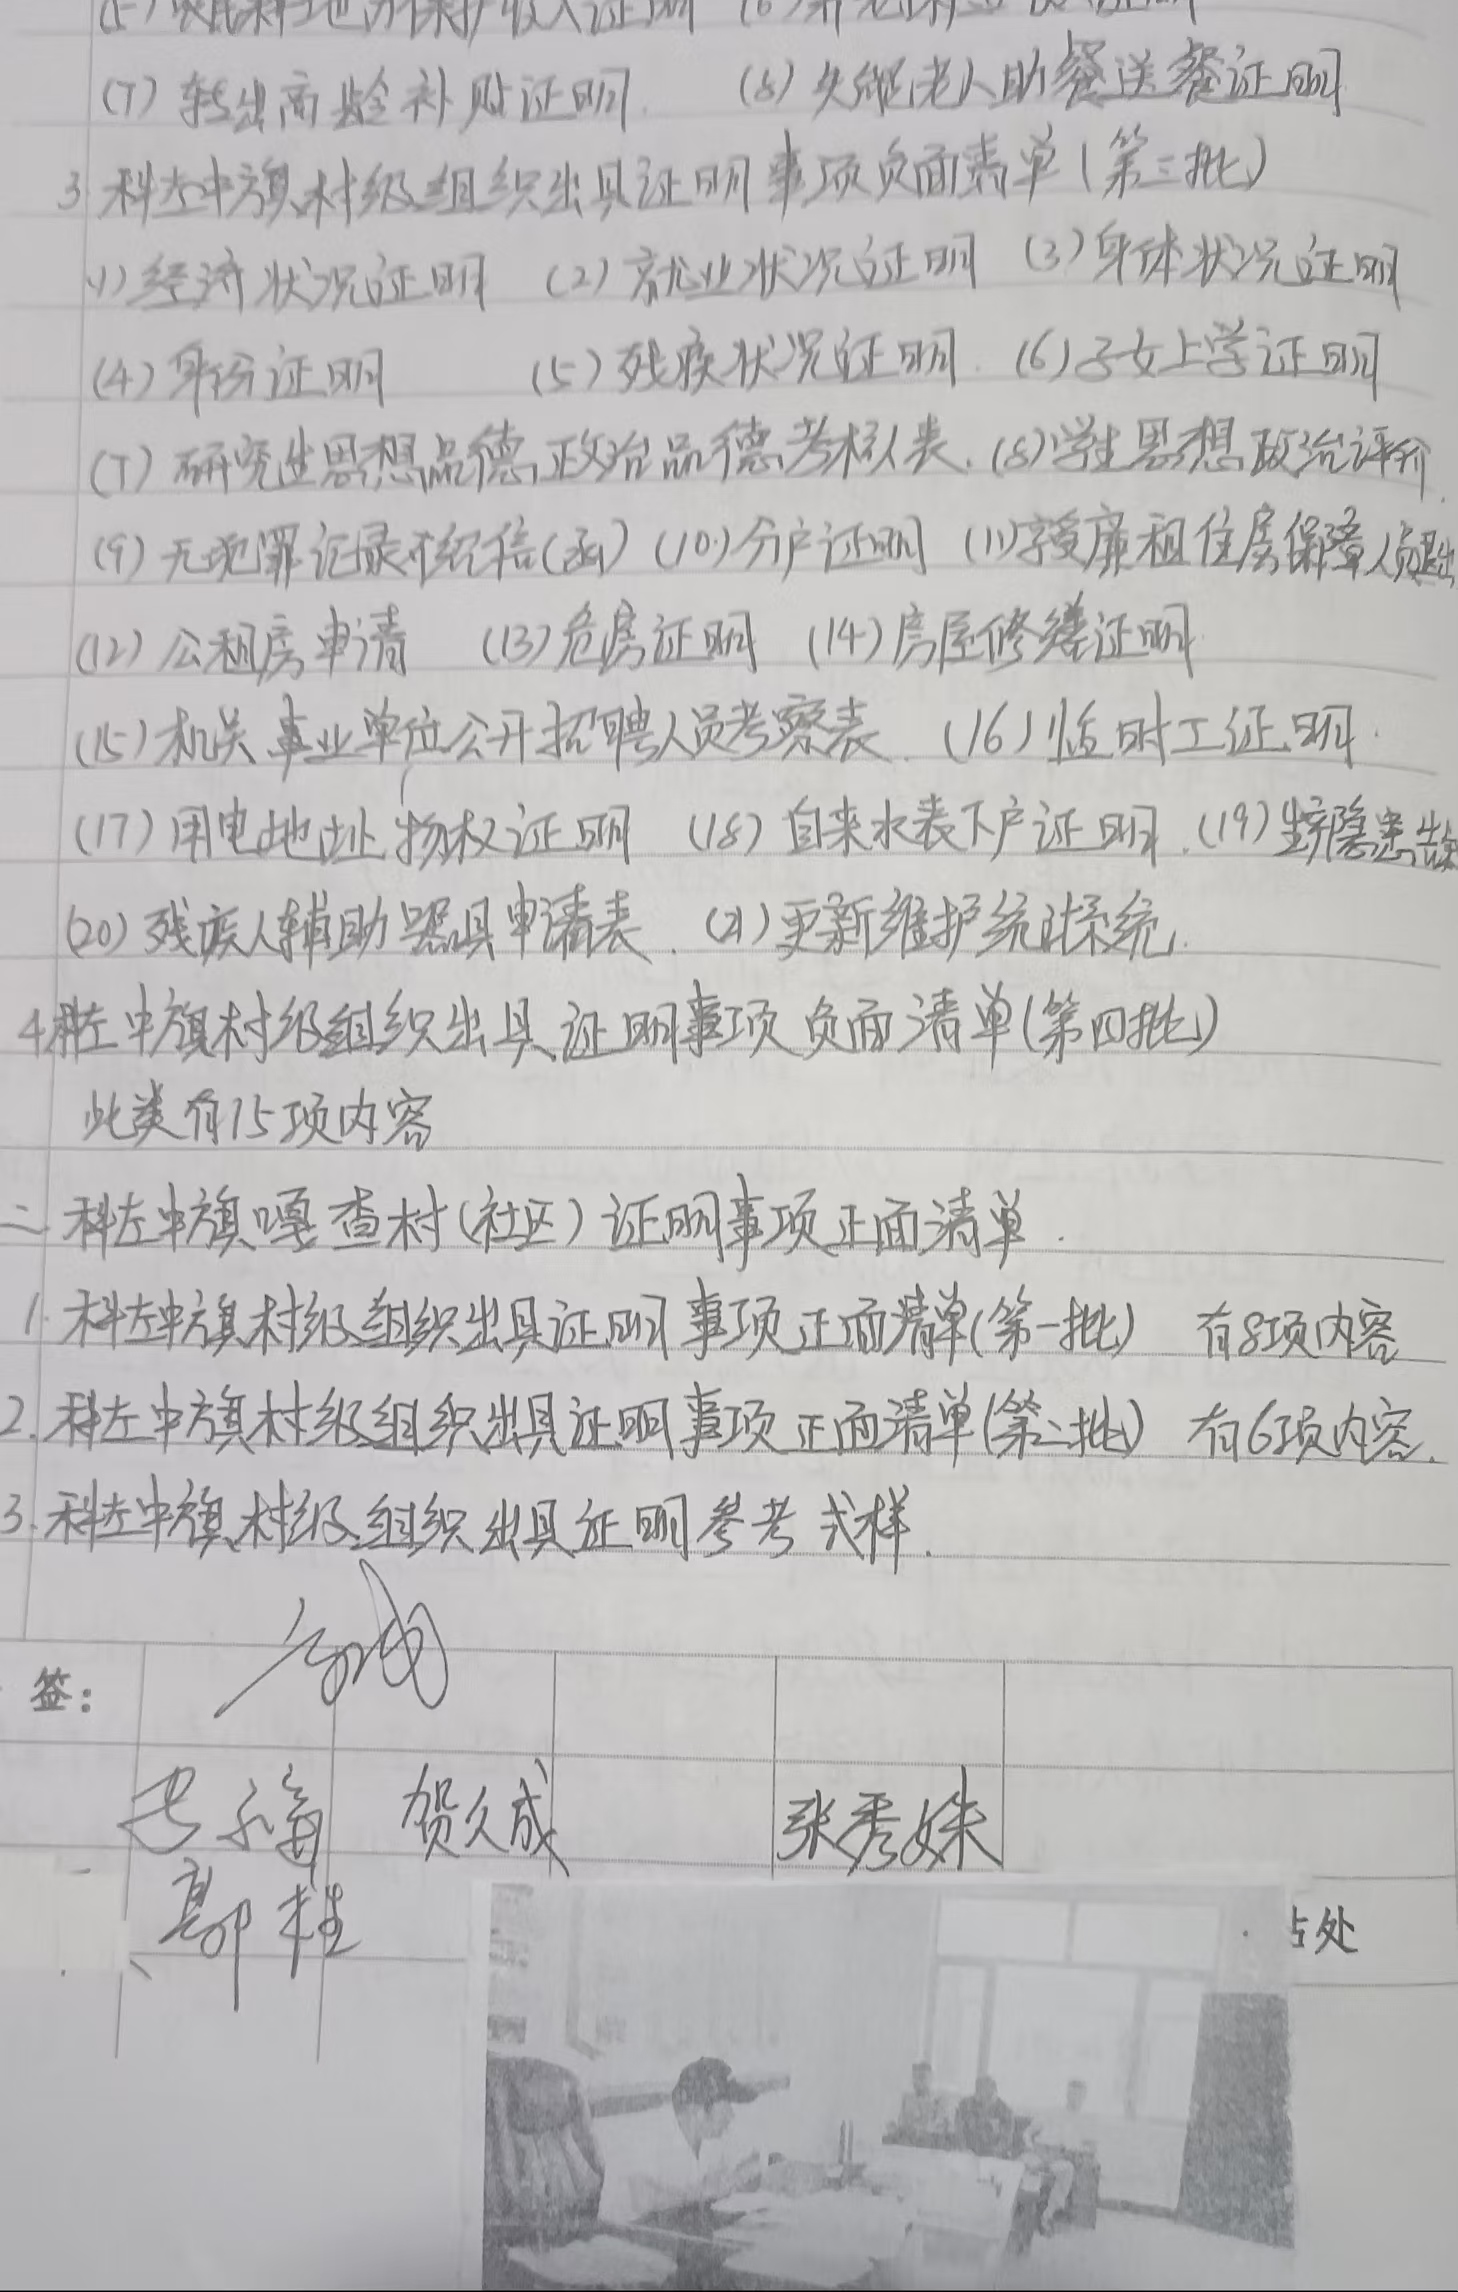 (7) 转出高龄补贴证明 (8) 失能老人助餐送餐证明
3.科左中旗村级组织出具证明事项负面清单(第三批)
(1)经济状况证明 (2)就业状况证明 (3)身体状况证明
(4)身份证明 (5)残疾状况证明 (6)子女上学证明
(7)研究生思想品德政治品德考核表 (8)学生思想政治评价
(9)无犯罪记录介绍信(函) (10)分户证明 (11)享受廉租住房保障人员退出
(12)公租房申请 (13)危房证明 (14)房屋修缮证明
(15)机关事业单位公开招聘人员考察表 (16)临时工证明
(17)用电地址物权证明 (18)自来水表下户证明 (19)隐患告知
(20)残疾人辅助器具申请表 (21)更新维护统计系统
4.科左中旗村级组织出具证明事项负面清单(第四批)
此类有15项内容
二 科左中旗嘎查村(社区)证明事项正面清单
1.科左中旗村级组织出具证明事项正面清单(第一批) 有8项内容
2.科左中旗村级组织出具证明事项正面清单(第二批) 有6项内容
3.科左中旗村级组织出具证明参考式样
签:
贺久成 张秀妹
郭桂
处